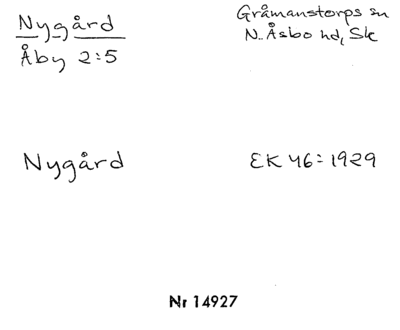 Nygård
Åby 2:5
Gråmanstorps sn
N. Åsbo hd, Sk
Nygård
EK 46:1929
Nr 14927